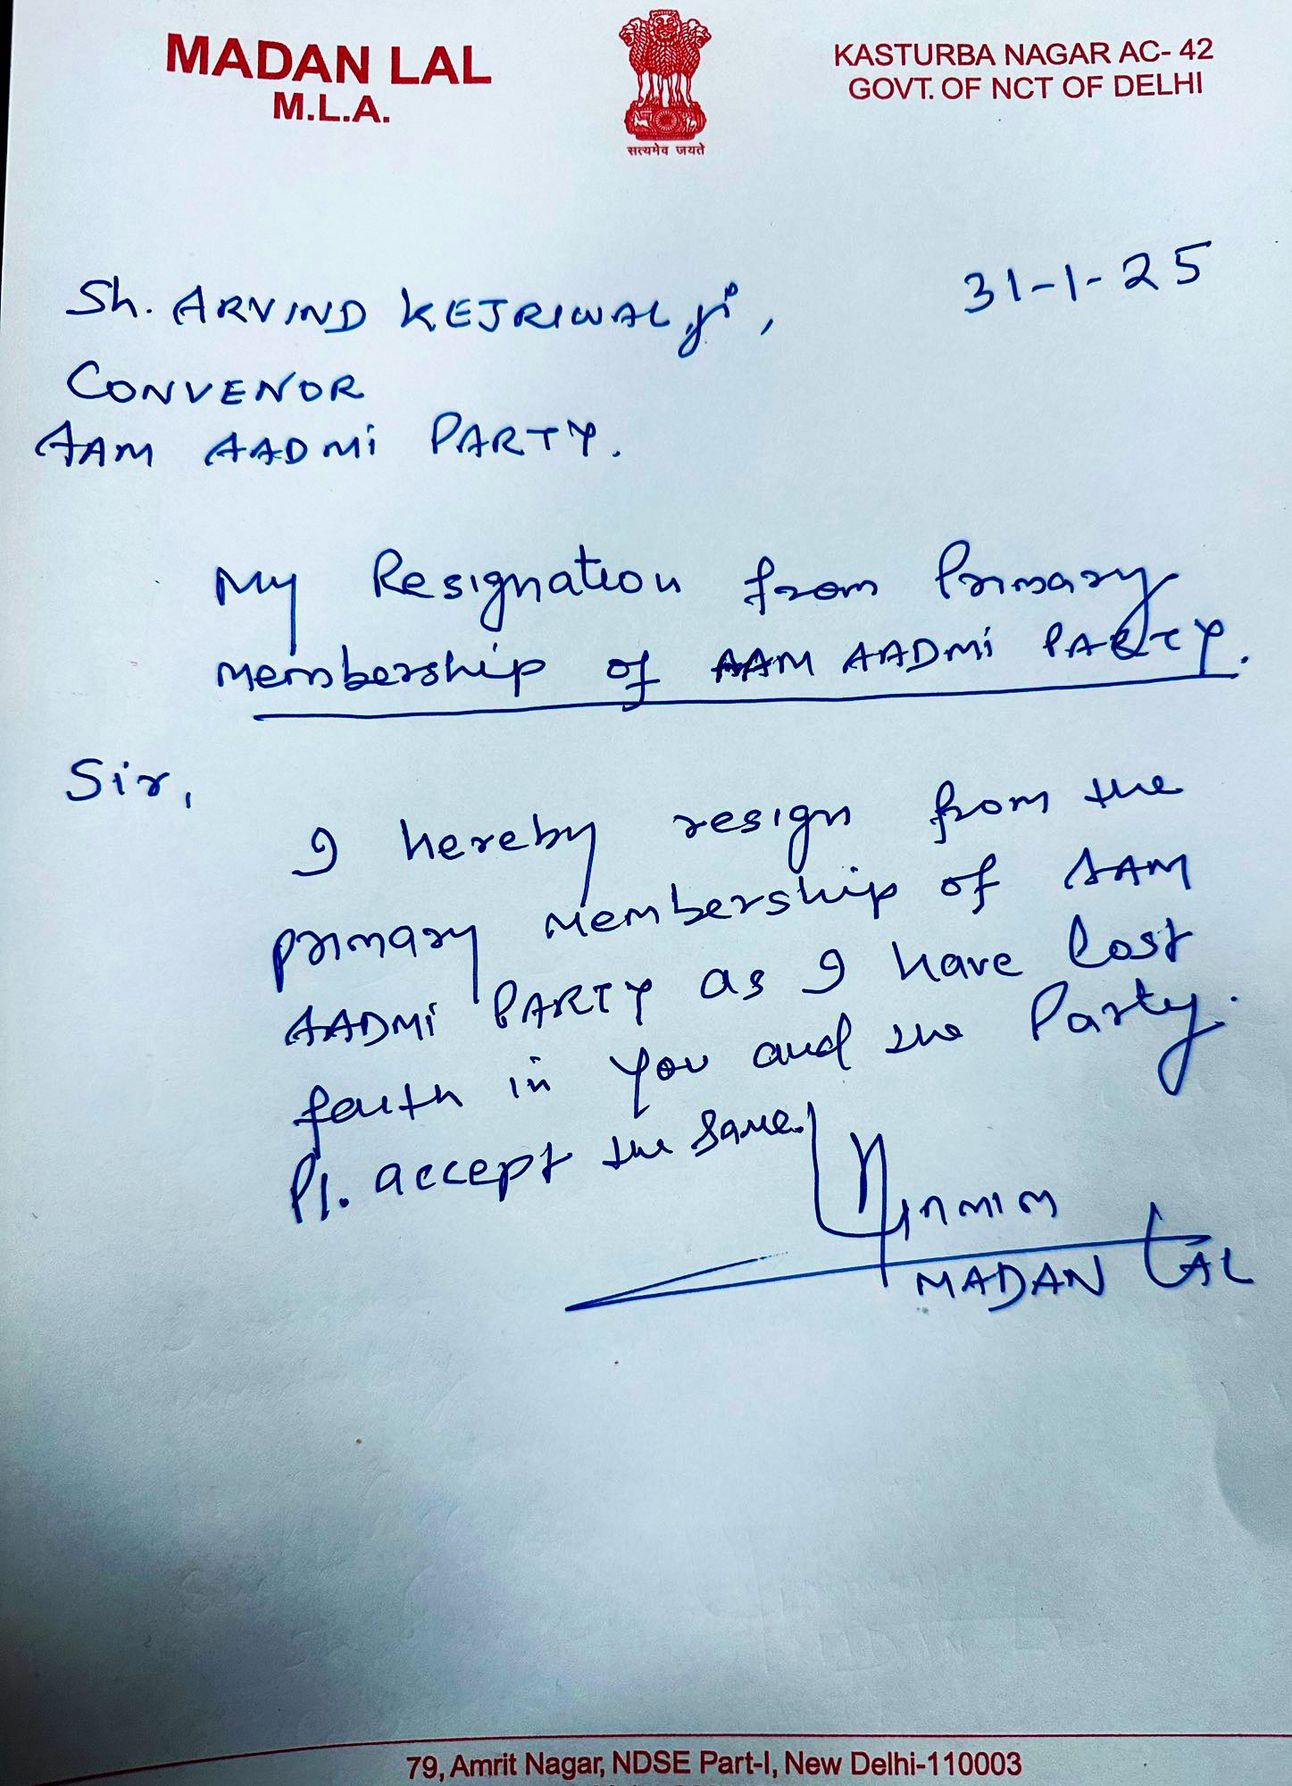 MADAN LAL
M.L.A.
सत्यमेव जयते
KASTURBA NAGAR AC- 42
GOVT. OF NCT OF DELHI
31-1-25
Sh. ARVIND KEJRIWAL ji,
CONVENOR
AAM AADMI PARTY.
My Resignation from Primary
membership of AAM AADMI PARTY.
Sir,
I hereby resign from the
primary membership of AAM
AADMI PARTY as I have lost
faith in you and the Party.
Pl. accept the same.
MADAN LAL
79, Amrit Nagar, NDSE Part-I, New Delhi-110003